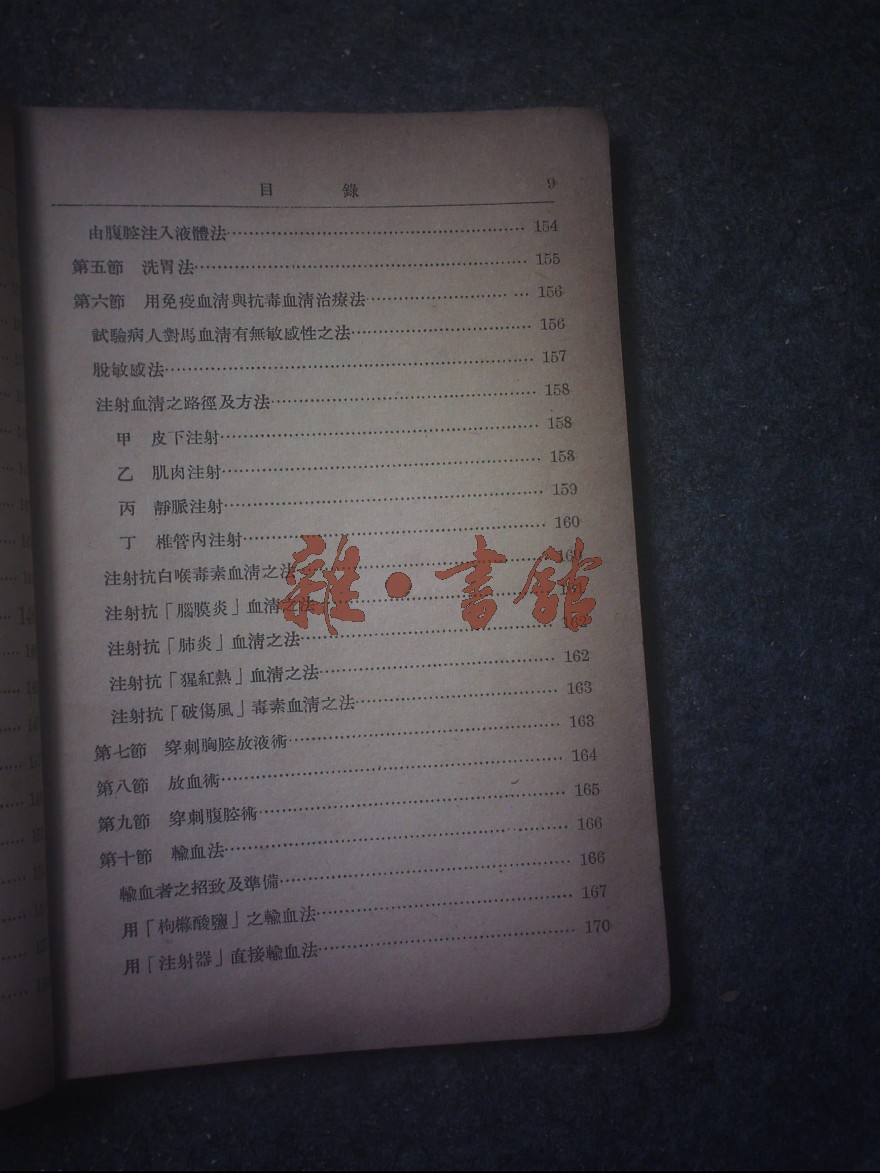 目　錄　9
由腹腔注入液體法 154
第五節　洗胃法 155
第六節　用免疫血清與抗毒血清治療法 156
試驗病人對馬血清有無敏感性之法 156
脫敏感法 157
注射血清之路徑及方法 158
甲　皮下注射 158
乙　肌肉注射 158
丙　靜脈注射 159
丁　椎管內注射 160
注射抗白喉毒素血清之法
注射抗「腦膜炎」血清之法 161
注射抗「肺炎」血清之法 162
注射抗「猩紅熱」血清之法 162
注射抗「破傷風」毒素血清之法 163
第七節　穿刺胸腔放液術 163
第八節　放血術 164
第九節　穿刺腹腔術 165
第十節　輸血法 166
輸血者之招致及準備 166
用「枸櫞酸鹽」之輸血法 167
用「注射器」直接輸血法 170
雜·書館